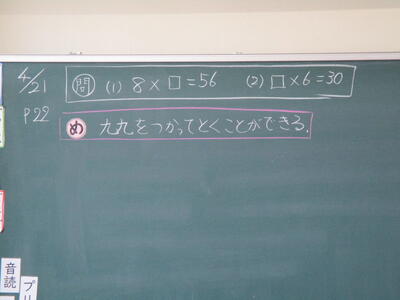 4/21
問 (1) 8×□=56 (2) □×6=30
P22
め 九九をつかってとくことができる.
音読
プリ